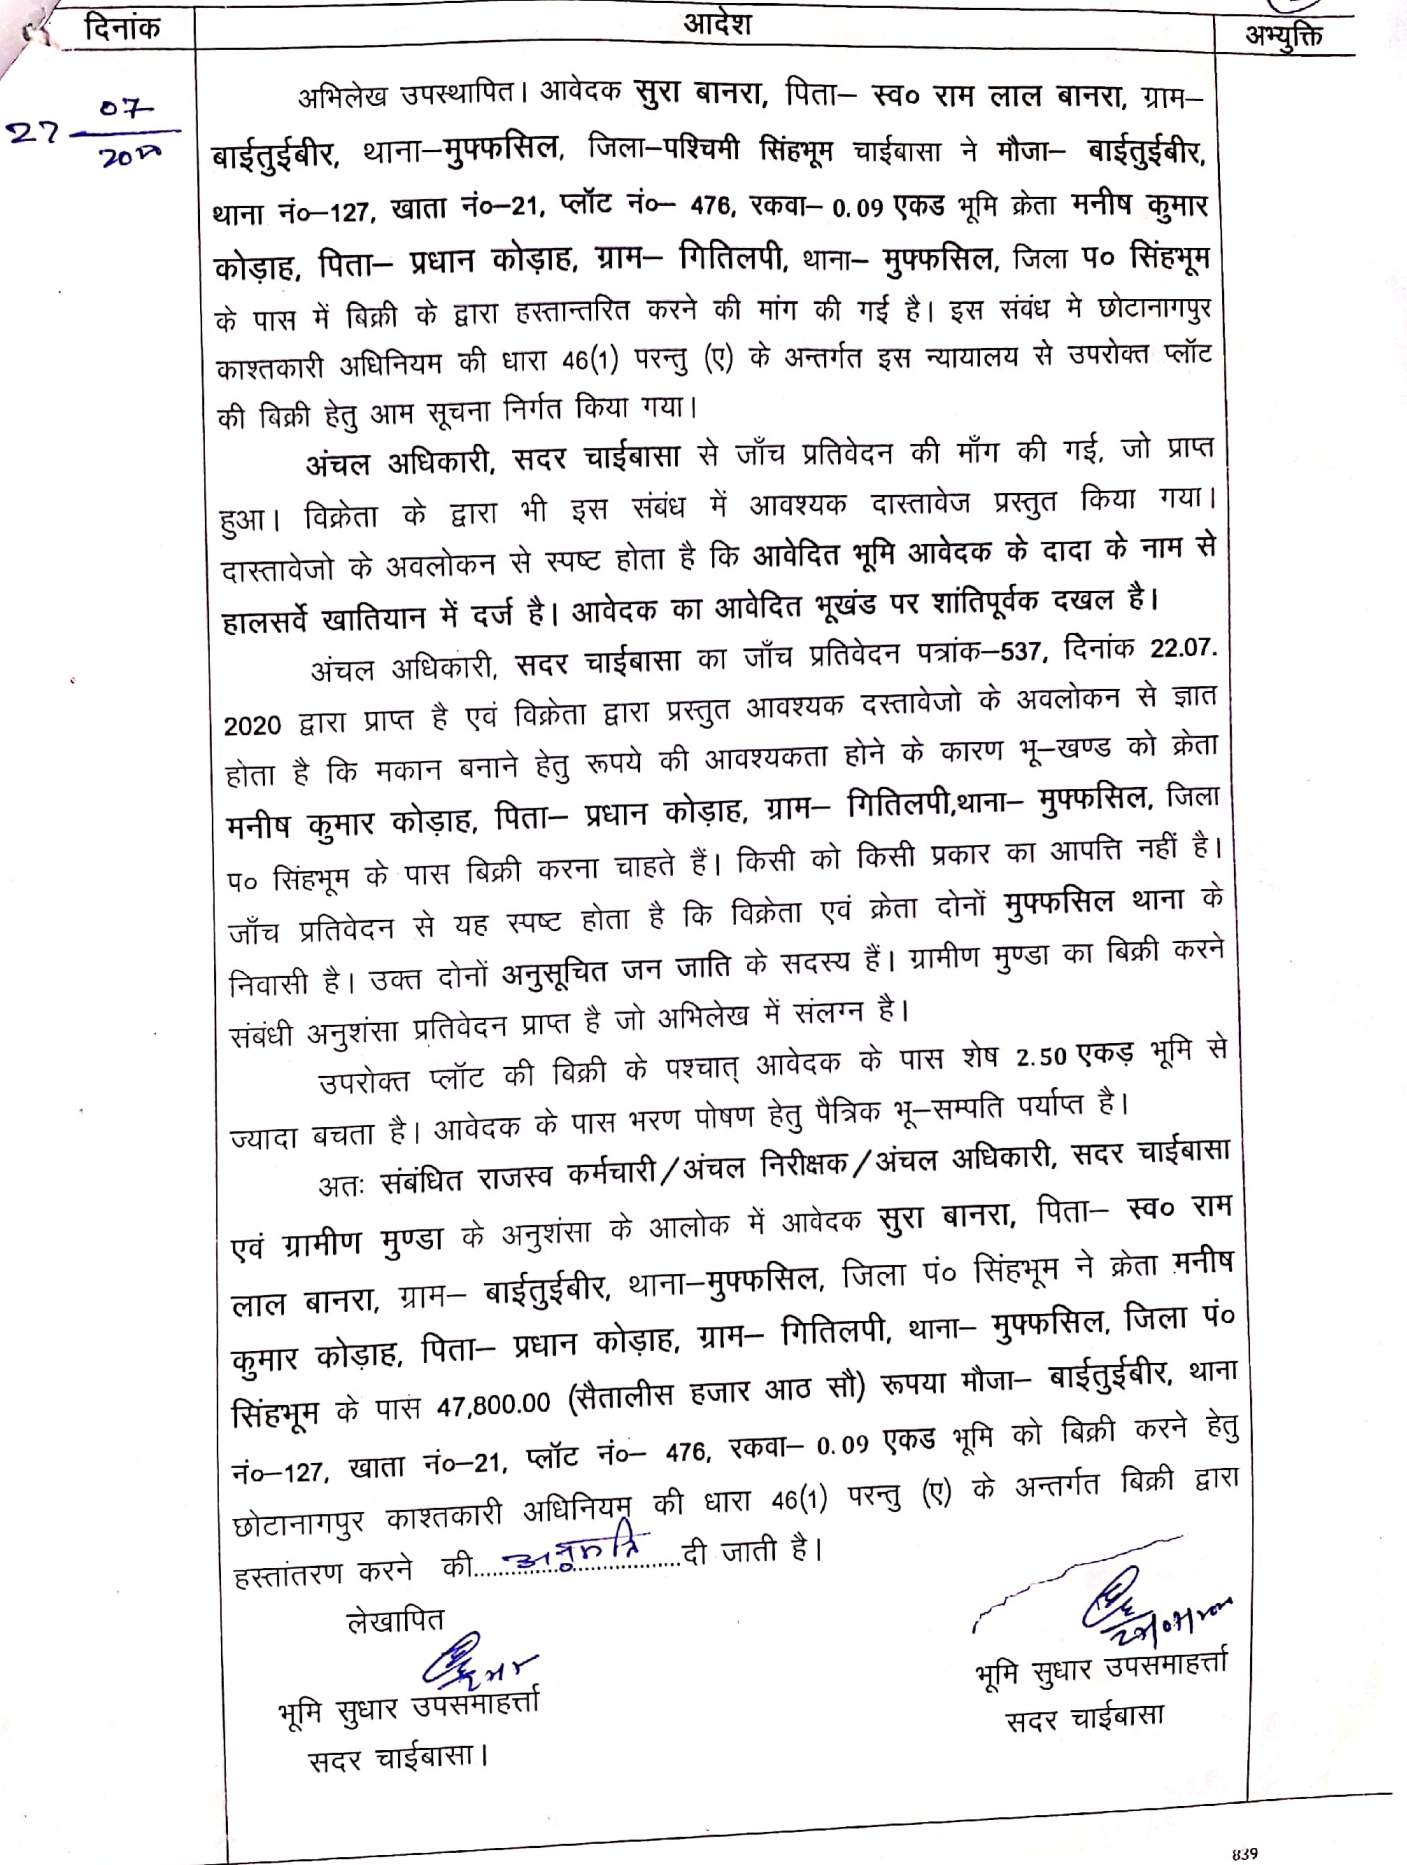 दिनांक आदेश अभ्युक्ति
27 07
2020
अभिलेख उपस्थापित। आवेदक सुरा बानरा, पिता– स्व० राम लाल बानरा, ग्राम–
बाईतुईबीर, थाना–मुफ्फसिल, जिला–पश्चिमी सिंहभूम चाईबासा ने मौजा– बाईतुईबीर,
थाना नं०–127, खाता नं०–21, प्लॉट नं०– 476, रकवा– 0.09 एकड भूमि क्रेता मनीष कुमार
कोड़ाह, पिता– प्रधान कोड़ाह, ग्राम– गितिलपी, थाना– मुफ्फसिल, जिला प० सिंहभूम
के पास में बिक्री के द्वारा हस्तान्तरित करने की मांग की गई है। इस संबंध मे छोटानागपुर
काश्तकारी अधिनियम की धारा 46(1) परन्तु (ए) के अन्तर्गत इस न्यायालय से उपरोक्त प्लॉट
की बिक्री हेतु आम सूचना निर्गत किया गया।
अंचल अधिकारी, सदर चाईबासा से जाँच प्रतिवेदन की माँग की गई, जो प्राप्त
हुआ। विक्रेता के द्वारा भी इस संबंध में आवश्यक दास्तावेज प्रस्तुत किया गया।
दास्तावेजो के अवलोकन से स्पष्ट होता है कि आवेदित भूमि आवेदक के दादा के नाम से
हालसर्वे खातियान में दर्ज है। आवेदक का आवेदित भूखंड पर शांतिपूर्वक दखल है।
अंचल अधिकारी, सदर चाईबासा का जाँच प्रतिवेदन पत्रांक–537, दिनांक 22.07.
2020 द्वारा प्राप्त है एवं विक्रेता द्वारा प्रस्तुत आवश्यक दस्तावेजो के अवलोकन से ज्ञात
होता है कि मकान बनाने हेतु रूपये की आवश्यकता होने के कारण भू–खण्ड को क्रेता
मनीष कुमार कोड़ाह, पिता– प्रधान कोड़ाह, ग्राम– गितिलपी,थाना– मुफ्फसिल, जिला
प० सिंहभूम के पास बिक्री करना चाहते हैं। किसी को किसी प्रकार का आपत्ति नहीं है।
जाँच प्रतिवेदन से यह स्पष्ट होता है कि विक्रेता एवं क्रेता दोनों मुफ्फसिल थाना के
निवासी है। उक्त दोनों अनुसूचित जन जाति के सदस्य हैं। ग्रामीण मुण्डा का बिक्री करने
संबंधी अनुशंसा प्रतिवेदन प्राप्त है जो अभिलेख में संलग्न है।
उपरोक्त प्लॉट की बिक्री के पश्चात् आवेदक के पास शेष 2.50 एकड़ भूमि से
ज्यादा बचता है। आवेदक के पास भरण पोषण हेतु पैत्रिक भू–सम्पति पर्याप्त है।
अतः संबंधित राजस्व कर्मचारी/अंचल निरीक्षक/अंचल अधिकारी, सदर चाईबासा
एवं ग्रामीण मुण्डा के अनुशंसा के आलोक में आवेदक सुरा बानरा, पिता– स्व० राम
लाल बानरा, ग्राम– बाईतुईबीर, थाना–मुफ्फसिल, जिला पं० सिंहभूम ने क्रेता मनीष
कुमार कोड़ाह, पिता– प्रधान कोड़ाह, ग्राम– गितिलपी, थाना– मुफ्फसिल, जिला पं०
सिंहभूम के पास 47,800.00 (सैतालीस हजार आठ सौ) रूपया मौजा– बाईतुईबीर, थाना
नं०–127, खाता नं०–21, प्लॉट नं०– 476, रकवा– 0.09 एकड भूमि को बिक्री करने हेतु
छोटानागपुर काश्तकारी अधिनियम की धारा 46(1) परन्तु (ए) के अन्तर्गत बिक्री द्वारा
हस्तांतरण करने की.....अनुमति.....दी जाती है।
लेखापित
भूमि सुधार उपसमाहर्त्ता भूमि सुधार उपसमाहर्त्ता
सदर चाईबासा। सदर चाईबासा
839